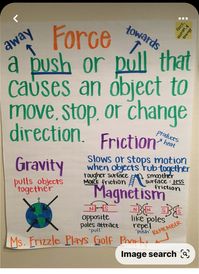 away
towards
Force
a push or pull that
causes an object to
move, stop, or change
direction.
Friction
produces
heat
Slows or stops motion
when objects rub together
Tougher surface
more friction
smoother
surface - less
friction
Gravity
pulls objects
together
Magnetism
opposite
poles attract
"pull"
like poles
repel
"push"
REMEMBER
Ms. Frizzle Plays Golf
Image search